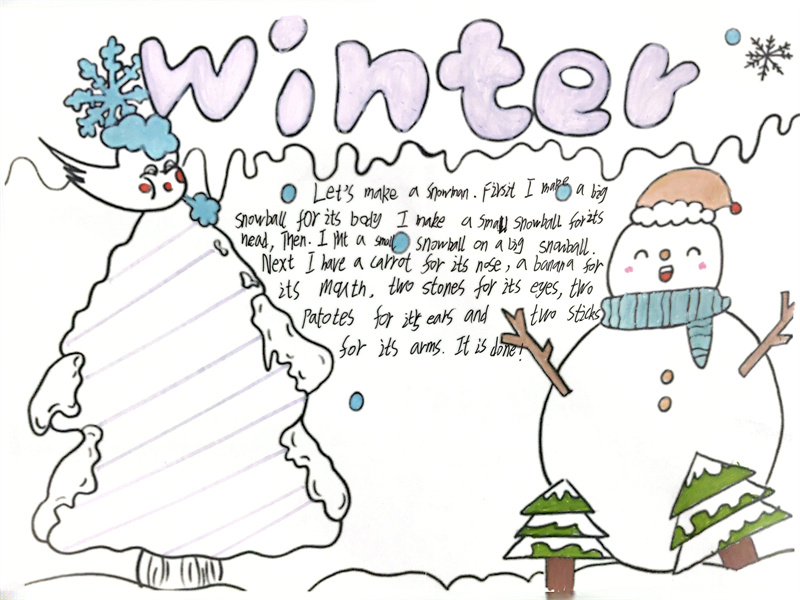 winter
Let's make a snowman. First I make a big
snowball for its body I make a small snowball for its
head, Then. I put a small snowball on a big snowball.
Next I have a carrot for its nose, a banana for
its mouth, two stones for its eyes, two
patotes for its ears and two sticks
for its arms. It is done!